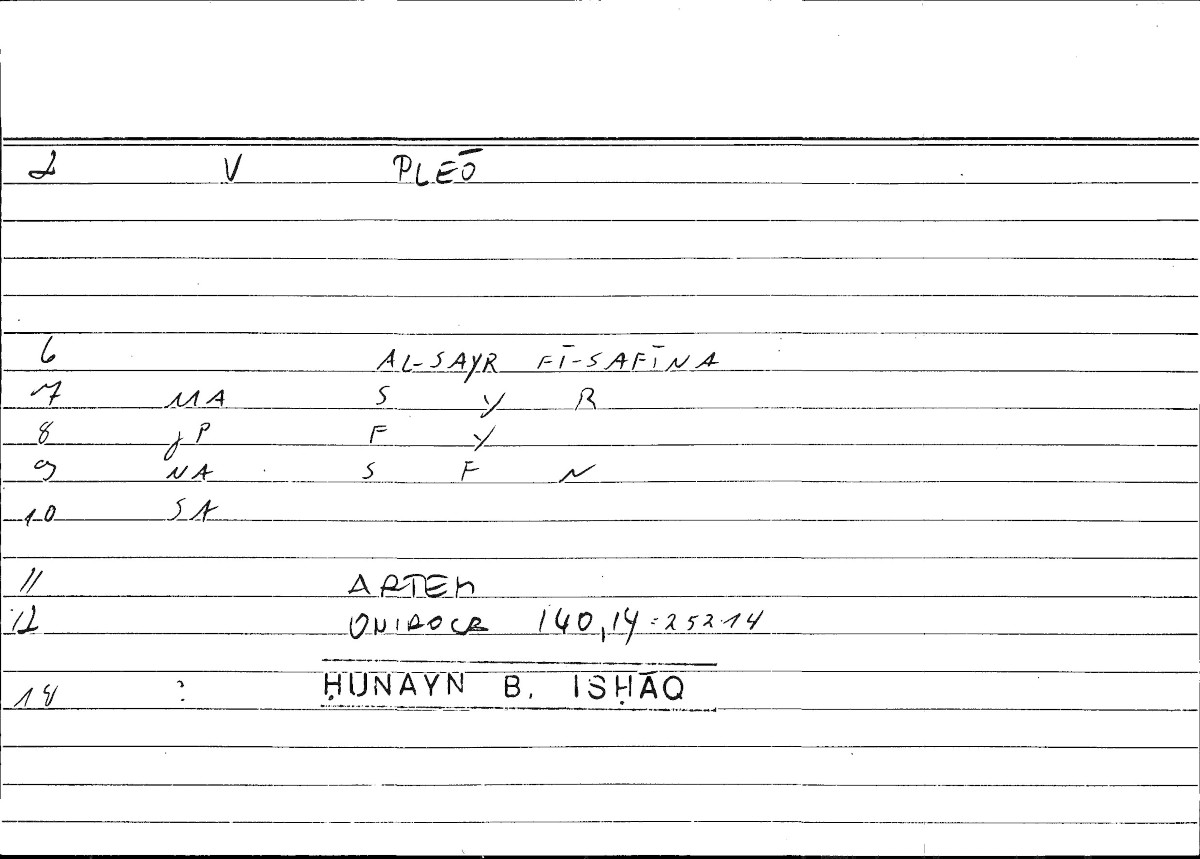 2 V PLEŌ
6 AL-SAYR FĪ-SAFĪNA
7 MA S Y R
8 JP F Y
9 NA S F N
10 SA
11 ARTEM
12 ONIROCR 140,14=252.14
18 ? ḤUNAYN B. ISḤĀQ